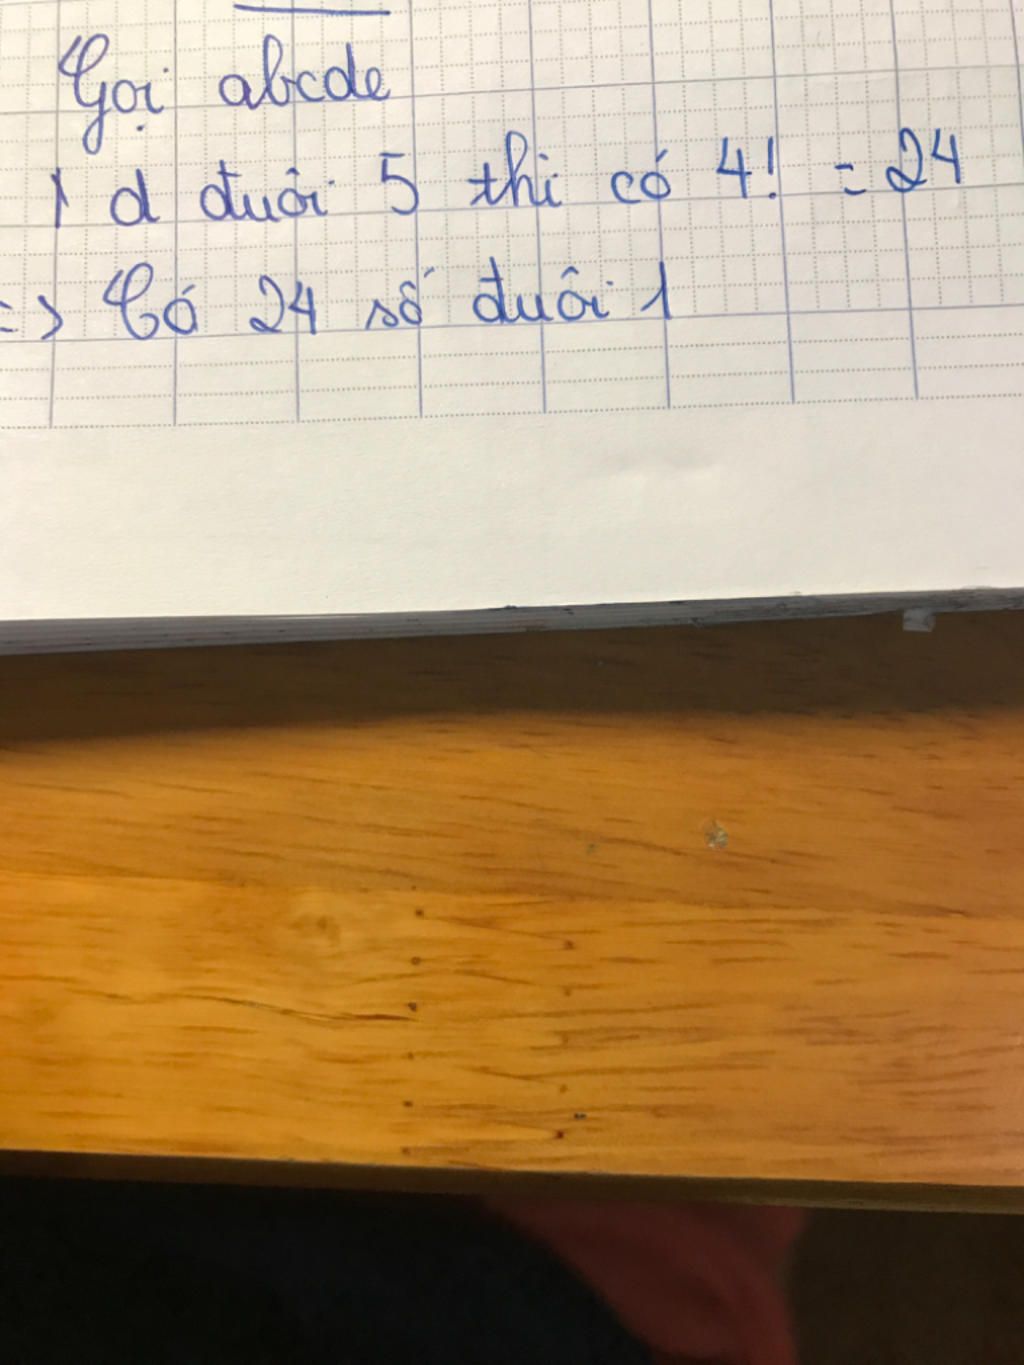 Gọi abcde
1 d đuôi 5 thì có 4! = 24
=> Có 24 số đuôi 1